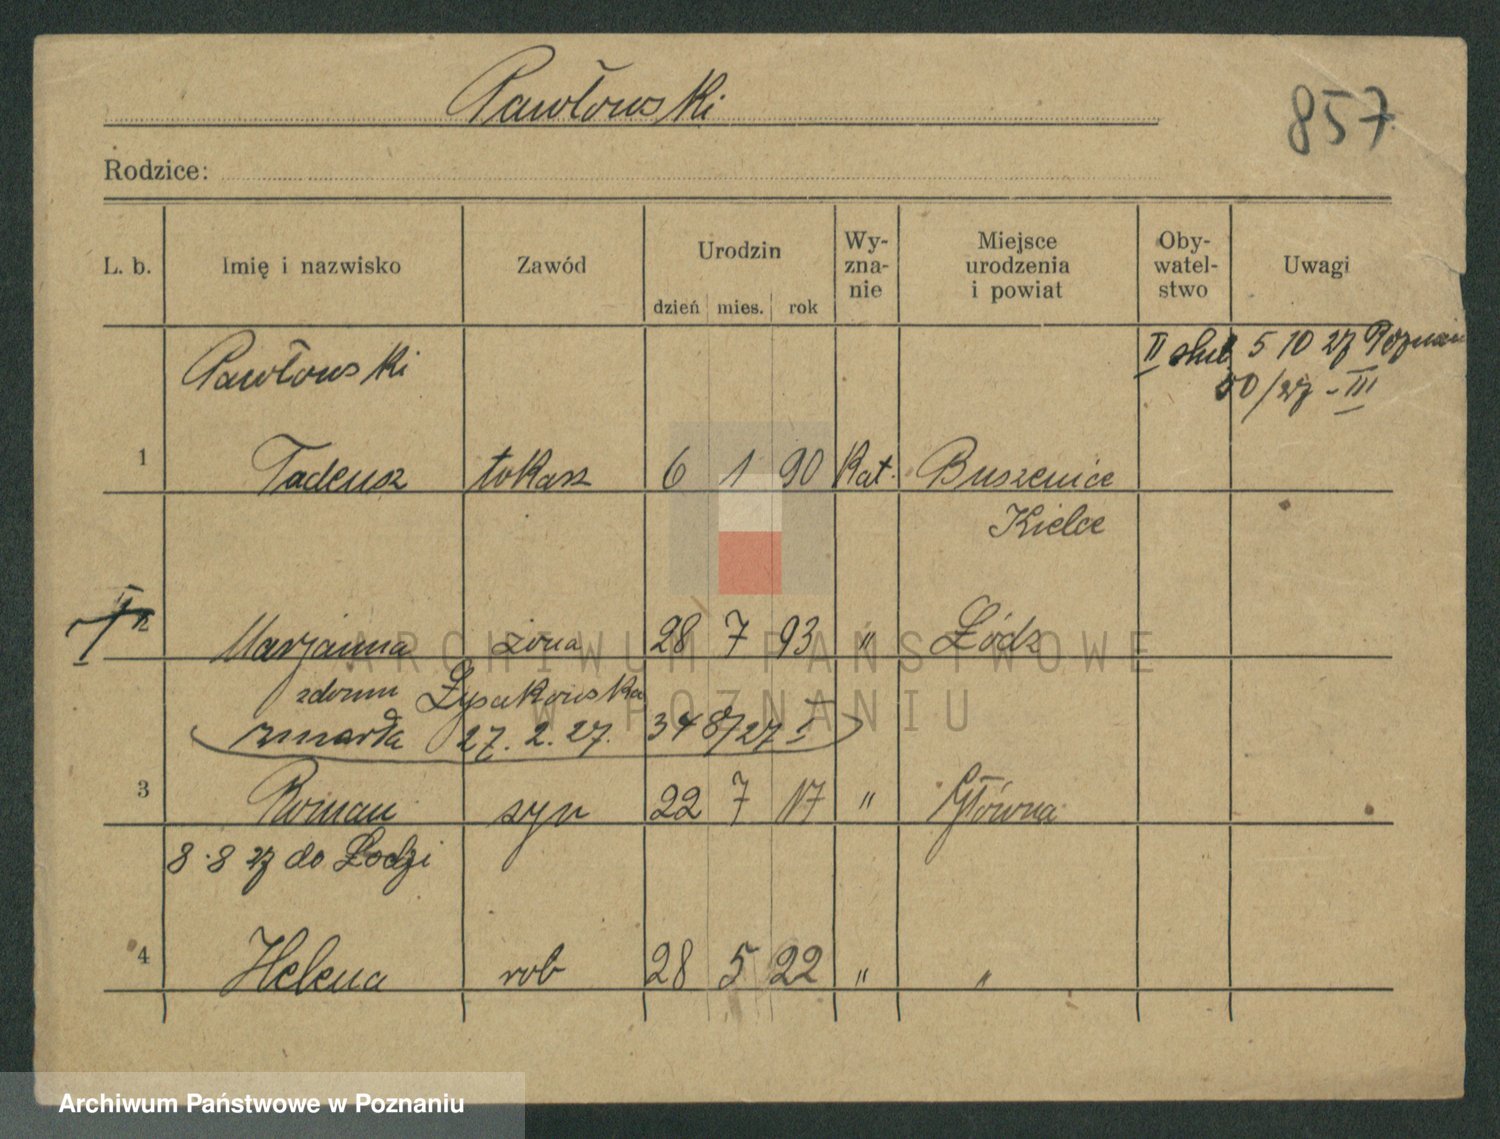 Pawłowski
857
Rodzice:
L. b. Imię i nazwisko Zawód Urodzin dzień mies. rok Wy-zna-nie Miejsce urodzenia i powiat Oby-watel-stwo Uwagi
II ślub 5 10 27 Poznań
Pawłowski 50/27 - III
1 Tadeusz tokarz 6 1 90 kat. Buszenice
Kielce
Marjanna żona 28 7 93 " Łódz
zdomu Łysakowska
zmarła 27. 2. 27. 348/27 I
3 Roman syn 22 7 17 " Główna
8.8 27 do Łodzi
4 Helena rob 28 5 22 " "
ARCHIWUM PAŃSTWOWE
W POZNANIU
Archiwum Państwowe w Poznaniu